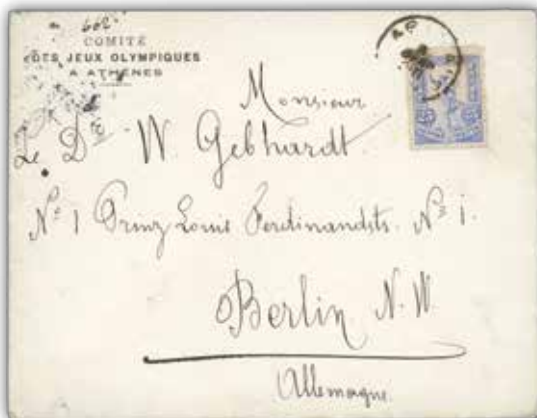 662
COMITÉ
DES JEUX OLYMPIQUES
A ATHÈNES
Monsieur
Le Dr W. Gebhardt
No 1 Prinz Louis Ferdinandsts. No 1.
Berlin N.W.
Allemagne